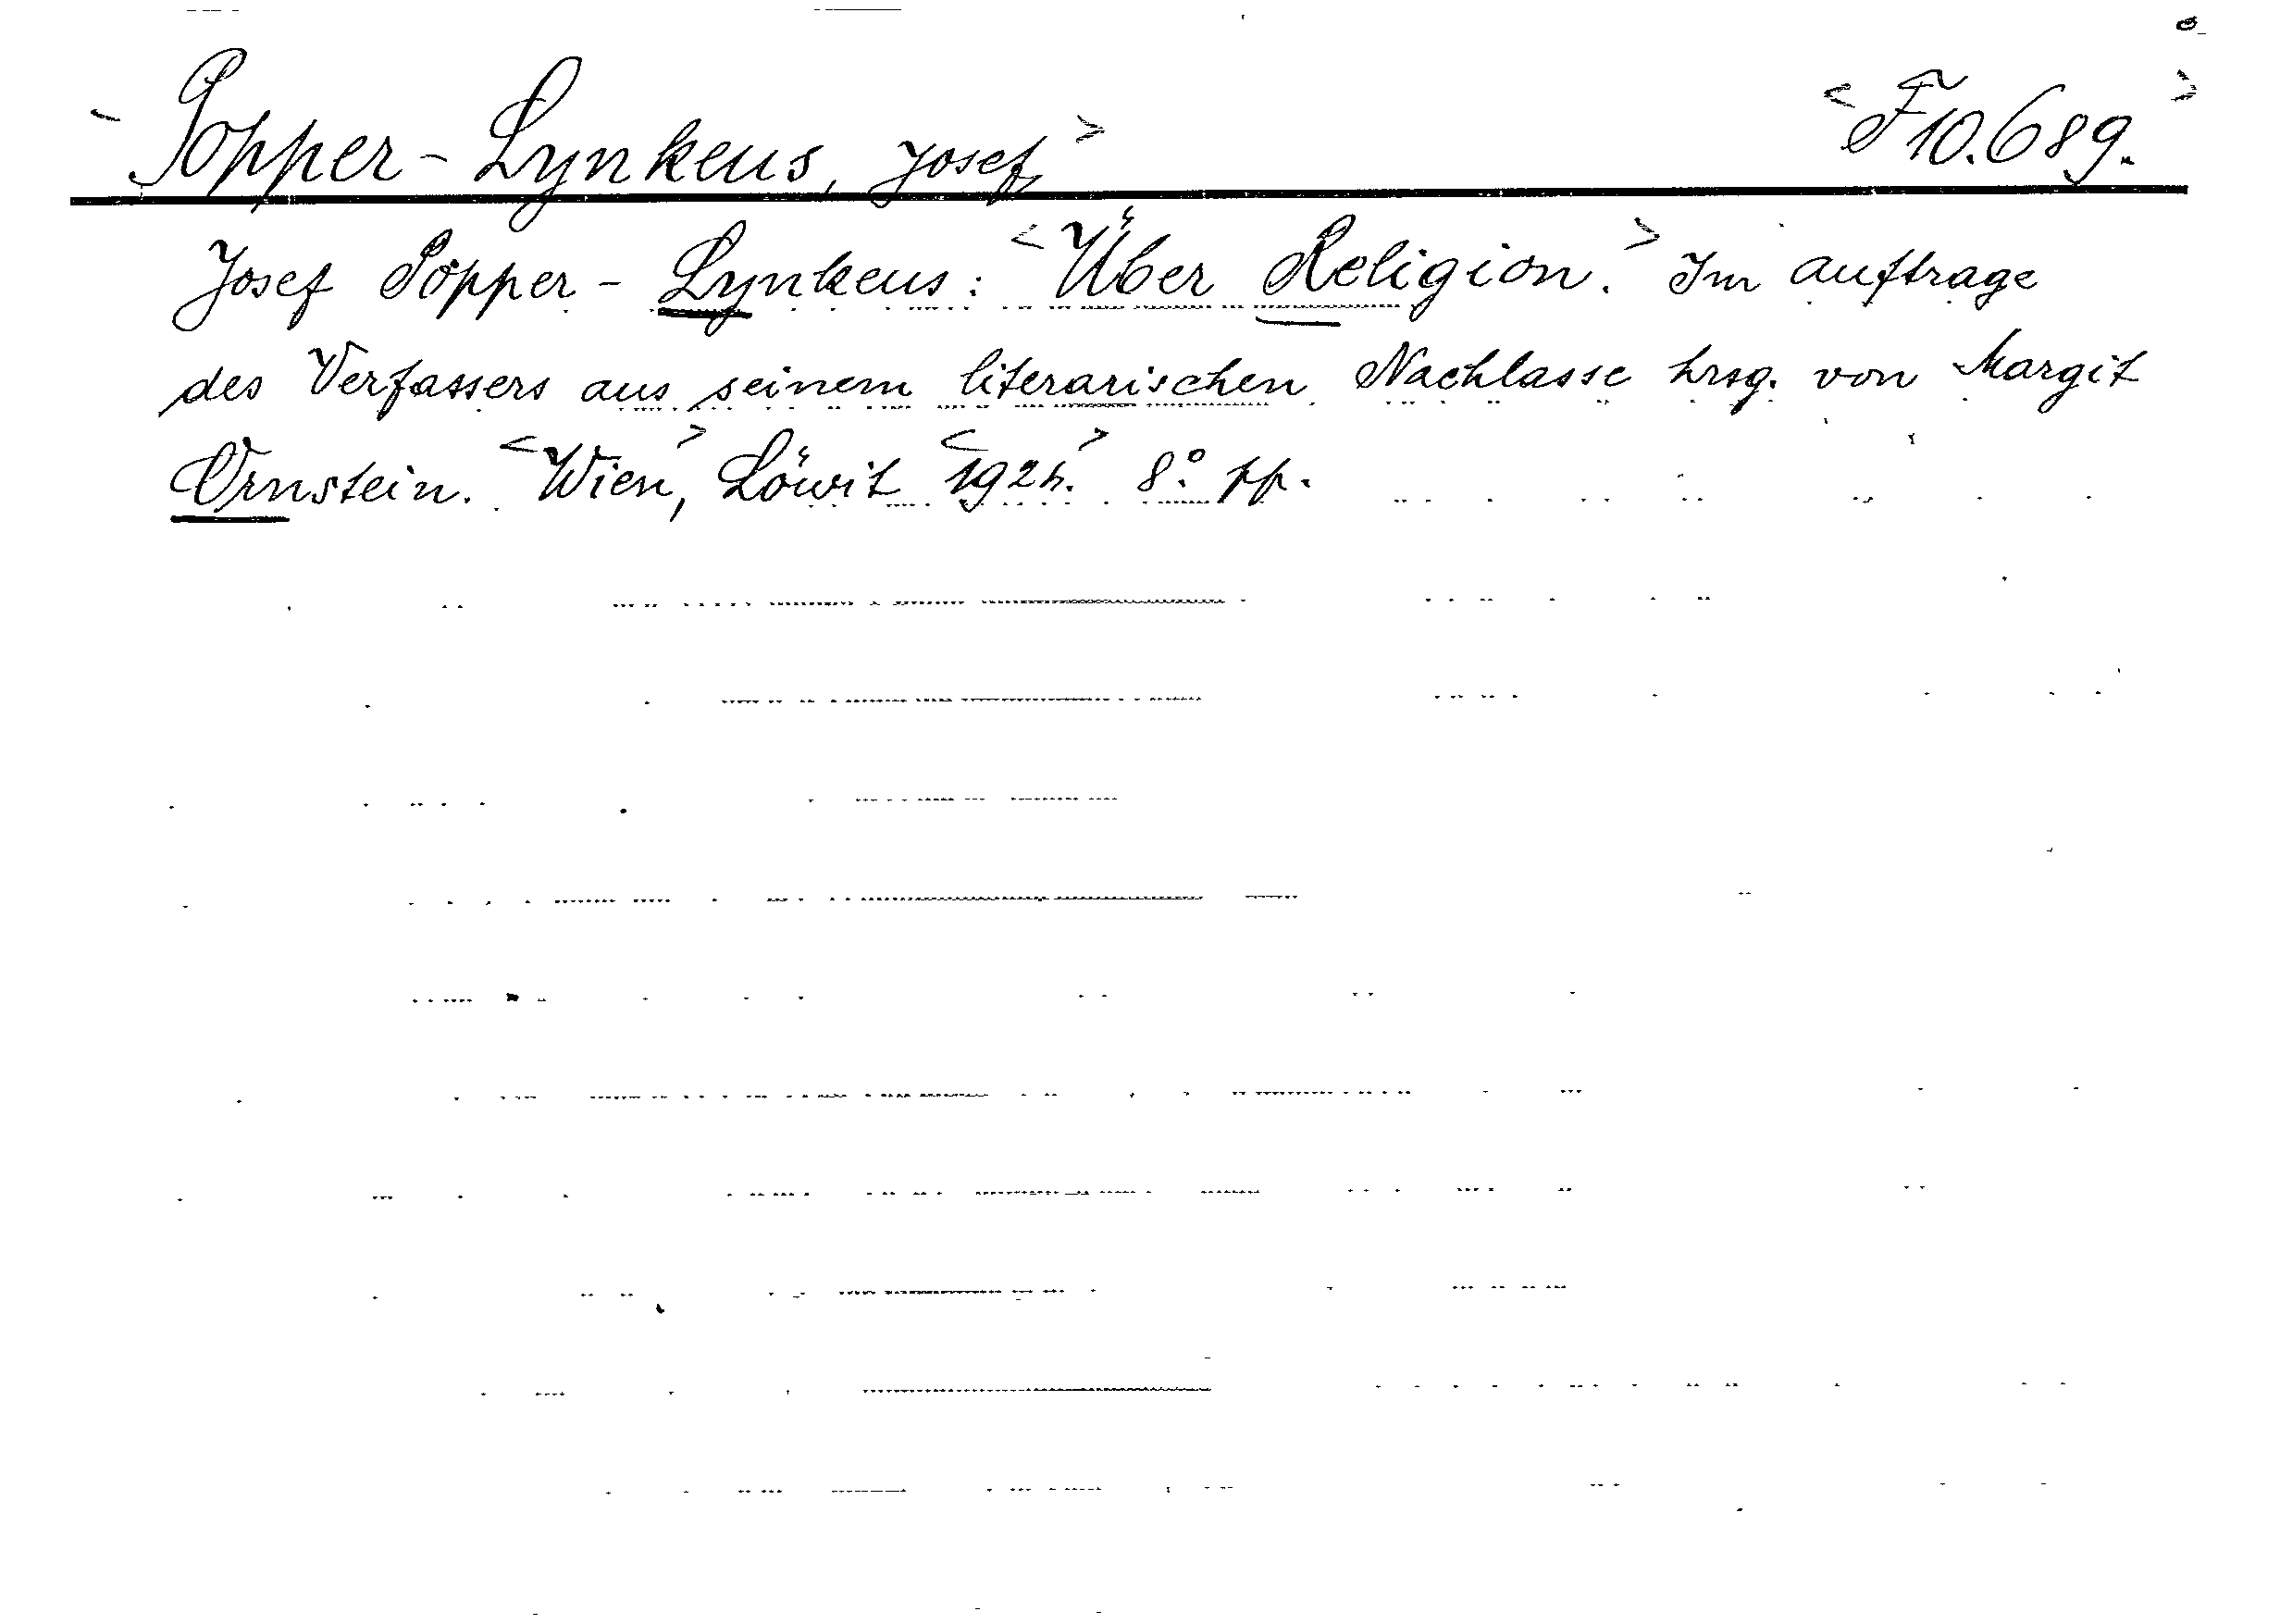 <Popper-Lynkeus, Josef> <F 10.689.>
Josef Popper-Lynkeus: <Über Religion.> Im Auftrage
des Verfassers aus seinem literarischen Nachlasse hrsg. von Margit
Ornstein. <Wien>, Löwit <1924.> 8° pp.